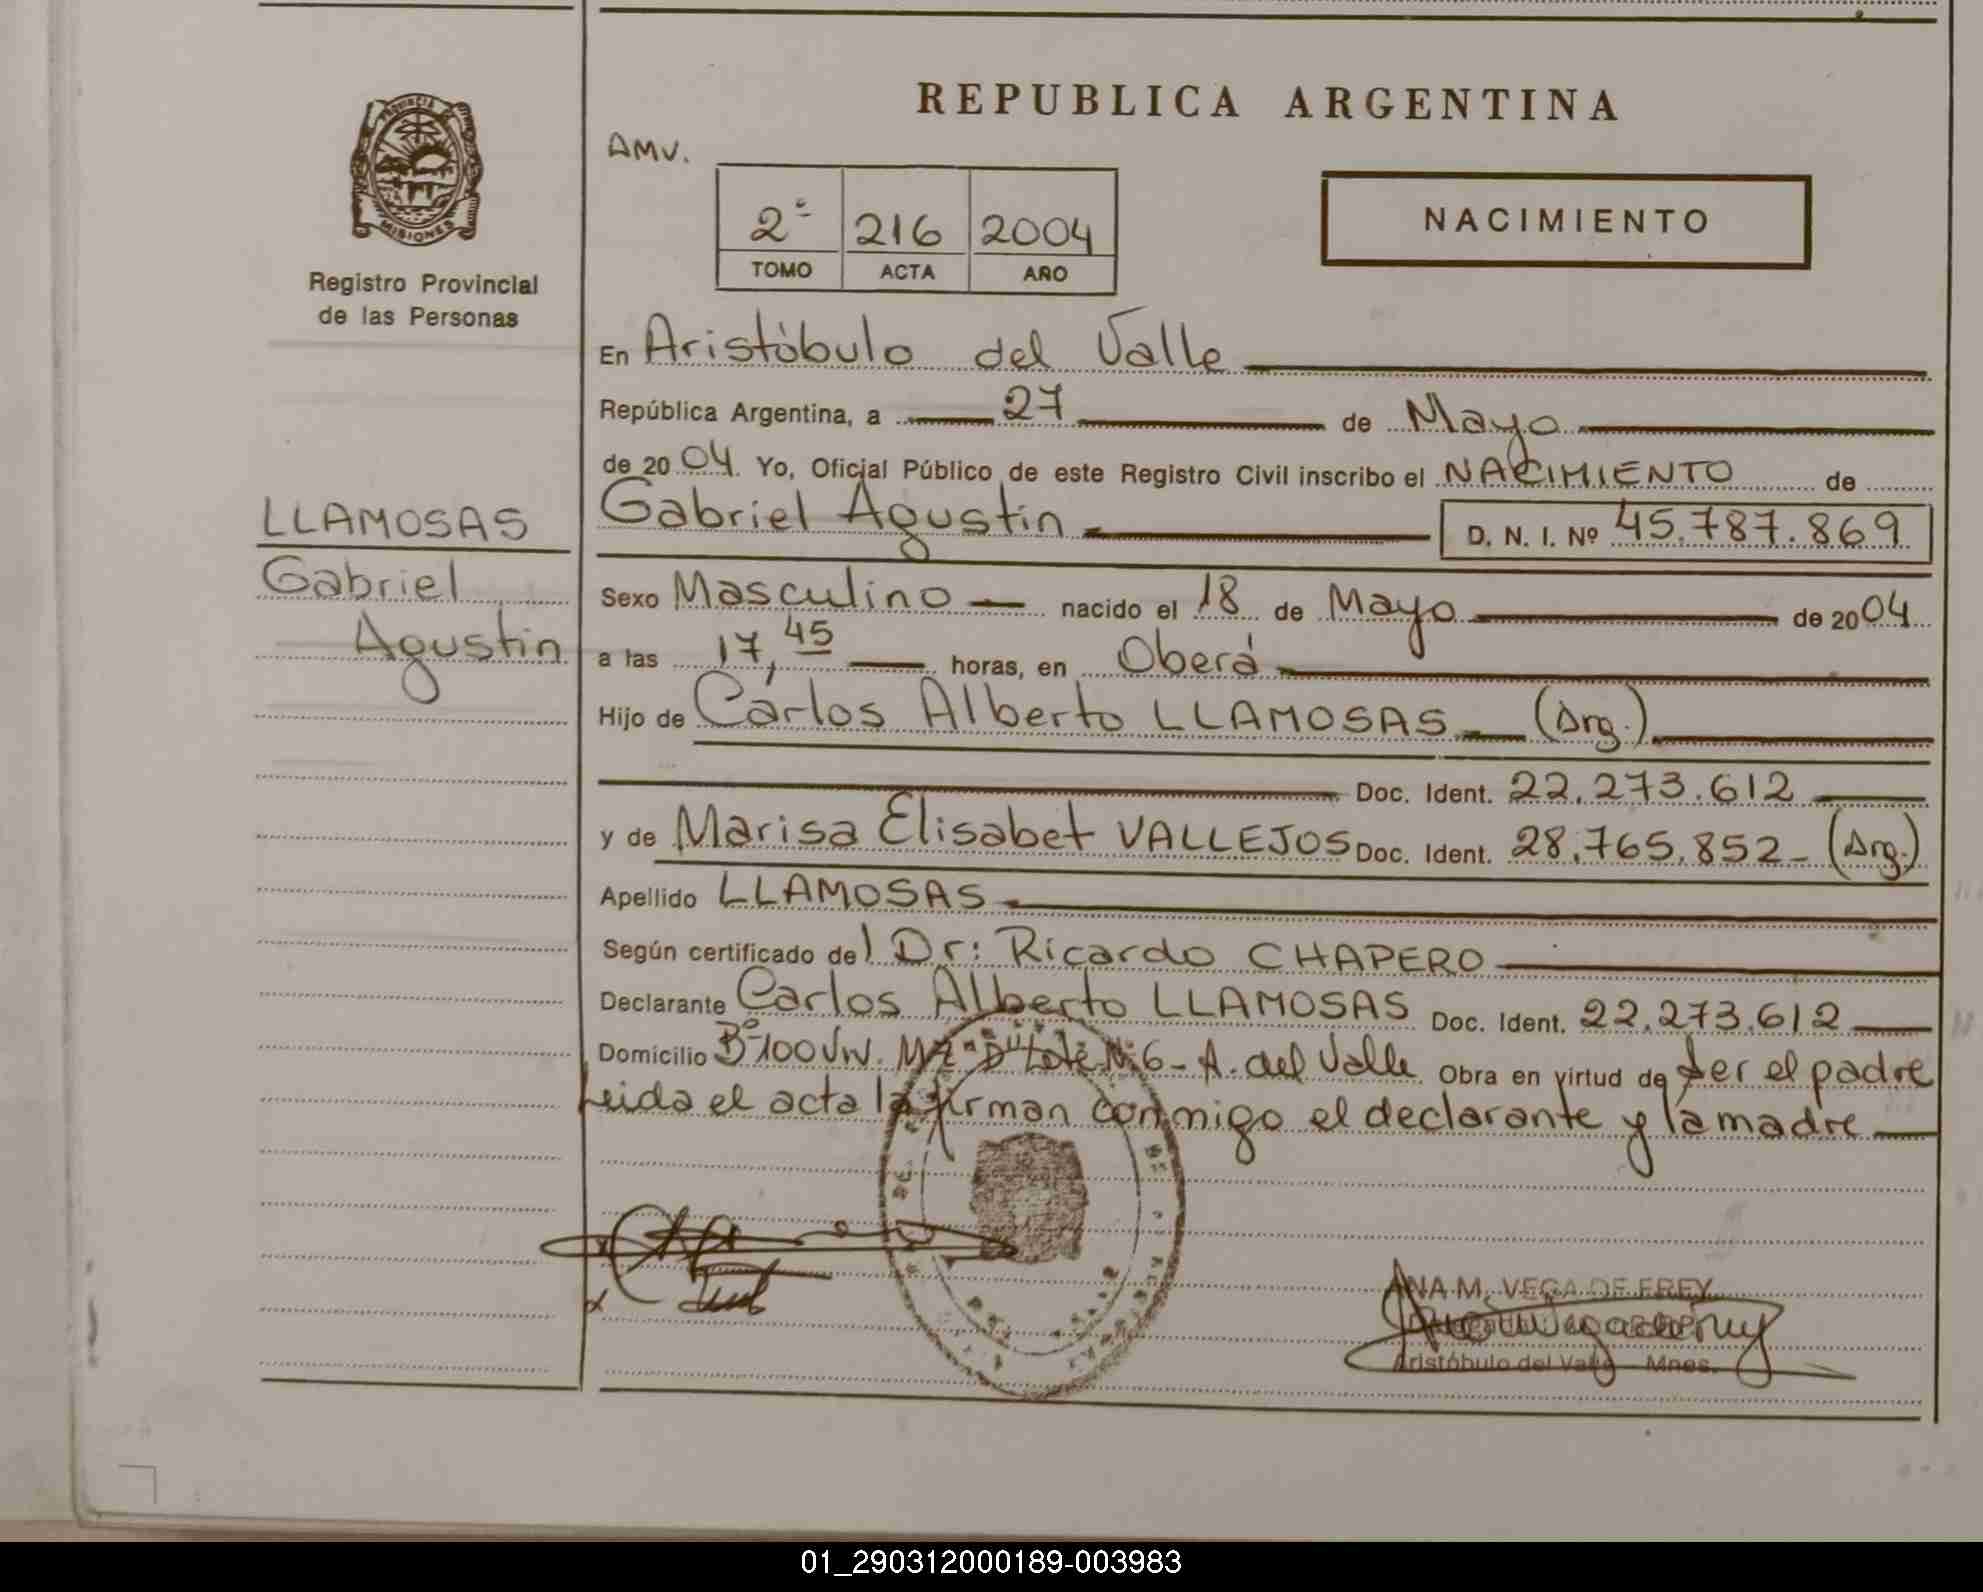 REPUBLICA ARGENTINA
AMV.
PROVINCIA
MISIONES
Registro Provincial
de las Personas
2º 216 2004
TOMO ACTA AÑO
NACIMIENTO
En Aristóbulo del Valle
República Argentina, a 27 de Mayo
de 2004. Yo, Oficial Público de este Registro Civil inscribo el NACIMIENTO de
LLAMOSAS
Gabriel
Agustin
Gabriel Agustin D. N. I. Nº 45.787.869
Sexo Masculino nacido el 18 de Mayo de 2004
a las 17,45 horas, en Oberá
Hijo de Carlos Alberto LLAMOSAS (Arg.)
Doc. Ident. 22.273.612
y de Marisa Elisabet VALLEJOS Doc. Ident. 28.765.852 - (Arg.)
Apellido LLAMOSAS
Según certificado del Dr: Ricardo CHAPERO
Declarante Carlos Alberto LLAMOSAS Doc. Ident. 22.273.612
Domicilio Bº 100 Viv. Mz "D" Lote Nº 6 - A. del Valle Obra en virtud de ser el padre
Leida el acta la firman conmigo el declarante y la madre
ANA M. VEGA DE FREY
Aristóbulo del Valle Mnes.
01_290312000189-003983